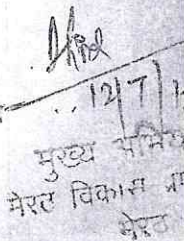 12/7/1
मुख्य अभिय
मेरठ विकास प्रा
मेरठ